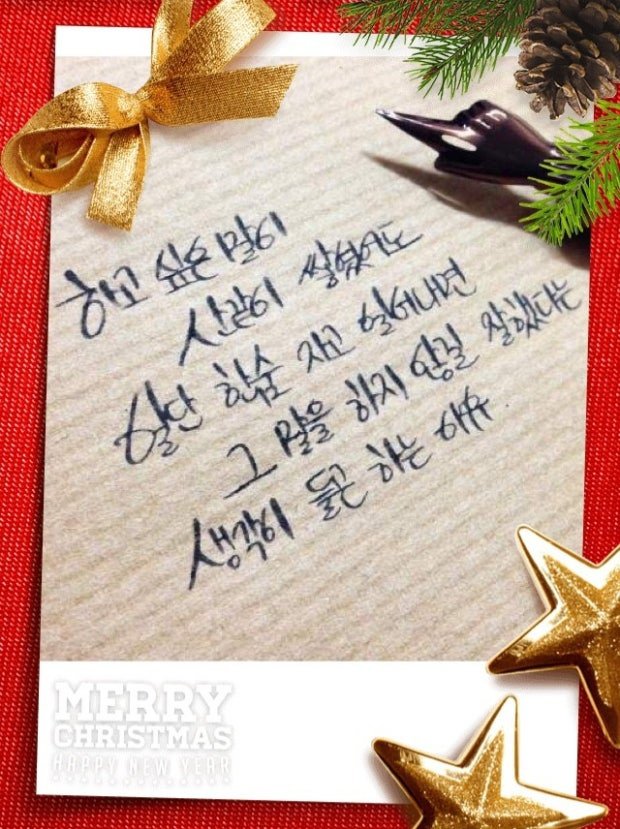 하고 싶은 말이
산같이 쌓였어도
일단 한숨 자고 일어나면
그 말을 하지 않길 잘했다는
생각이 들곤 하는 이유.
MERRY
CHRISTMAS
HAPPY NEW YEAR